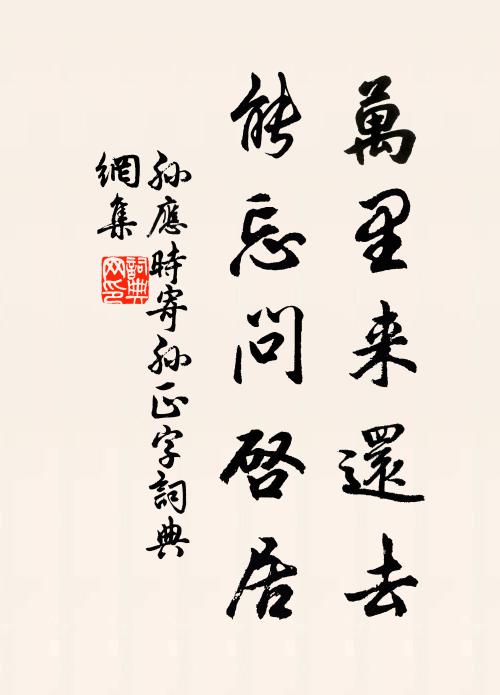 萬里来還去
能忘問啓居
孙應時寄孙正字詞典
網集
詞典
网印